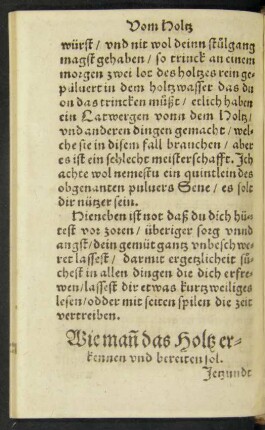 Vom Holtz
würst / vnd nit wol deinn stůlgang
magst gehaben / so trinck an einem
morgen zwei lot des holtzes rein ge-
puluert in dem holtzwasser das du
on das trincken můst / etlich haben
ein Latwergen vonn dem Holtz /
vnd anderen dingen gemacht / wel-
che sie in disem fall brauchen / aber
es ist ein schlecht meisterschafft. Jch
achte wol nemestu ein quintlein des
obgenanten puluers Sene / es solt
dir nützer sein.
Hieneben ist not daß du dich hü-
test vor zoren / überiger sorg vnnd
angst / dein gemüt gantz vnbeschwe-
ret lassest / darmit ergetzlicheit sů-
chest in allen dingen die dich erfre-
wen / lassest dir etwas kurtzweiliges
lesen / odder mit seiten spilen die zeit
vertreiben.
Wie mañ das Holtz er-
kennen vnd bereiten sol.
Jetzundt